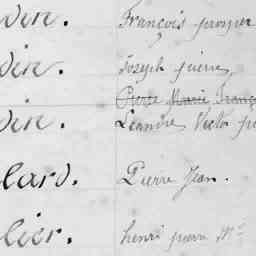 din. François prosper
din. joseph pierre
Pierre Marie Franç
din. Leandre Victor pi
lard. Pierre Jean.
lier. henri pierre Mie